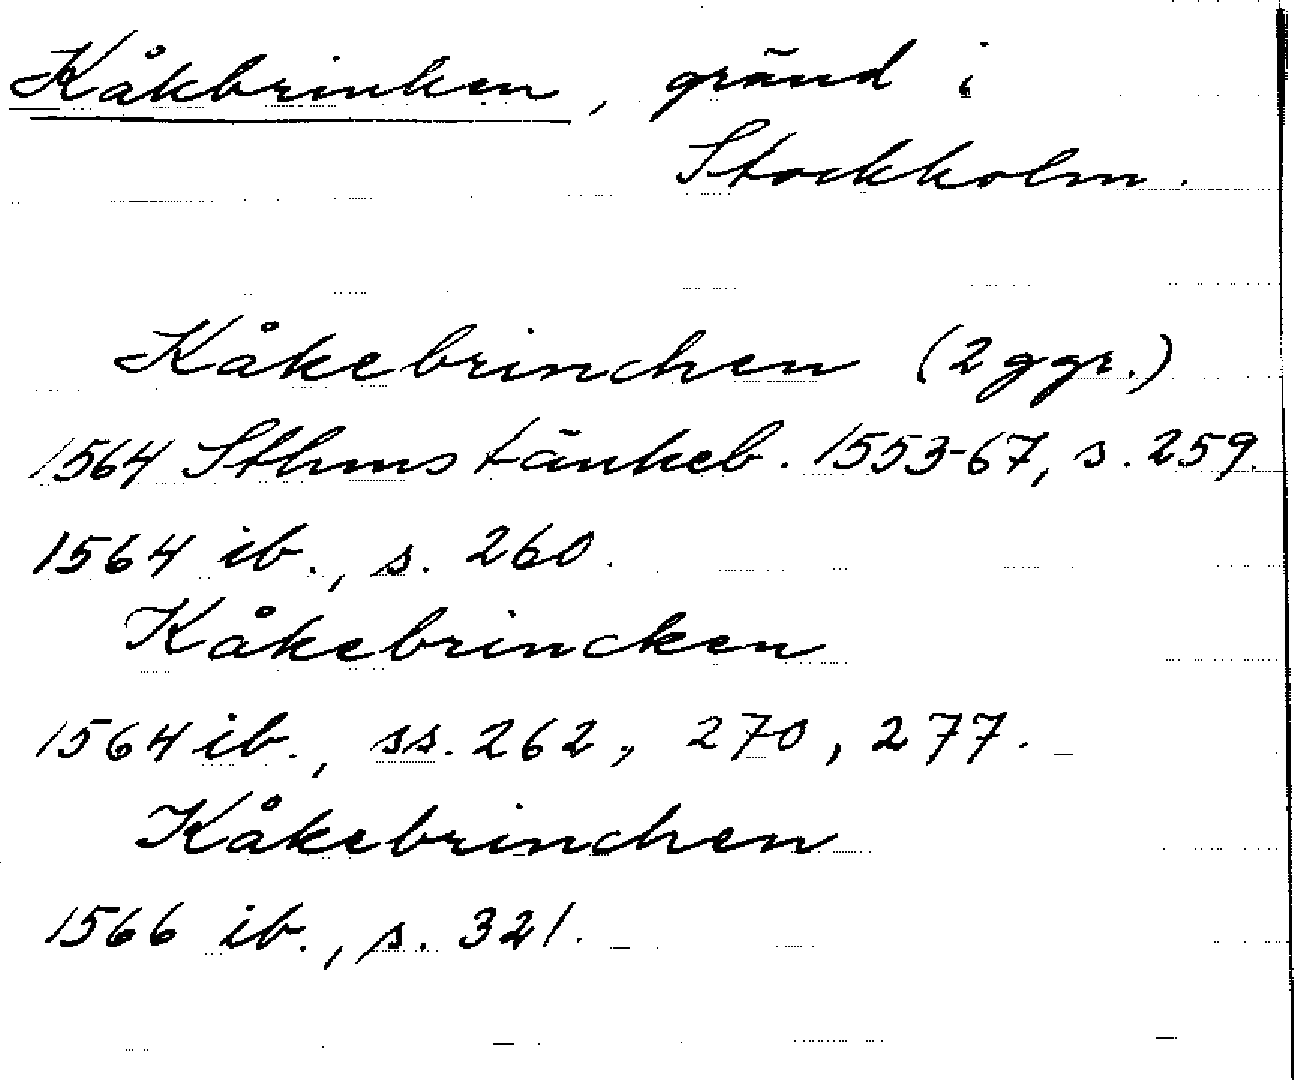 Kåkbrinken, gränd i
Stockholm.
Kåkebrinchen (2 ggr.)
1564 Sthms tänkeb. 1553-67, s. 259.
1564 ib., s. 260.
Kåkebrincken
1564 ib., ss. 262, 270, 277.
Kåkebrinchen
1566 ib., s. 321.